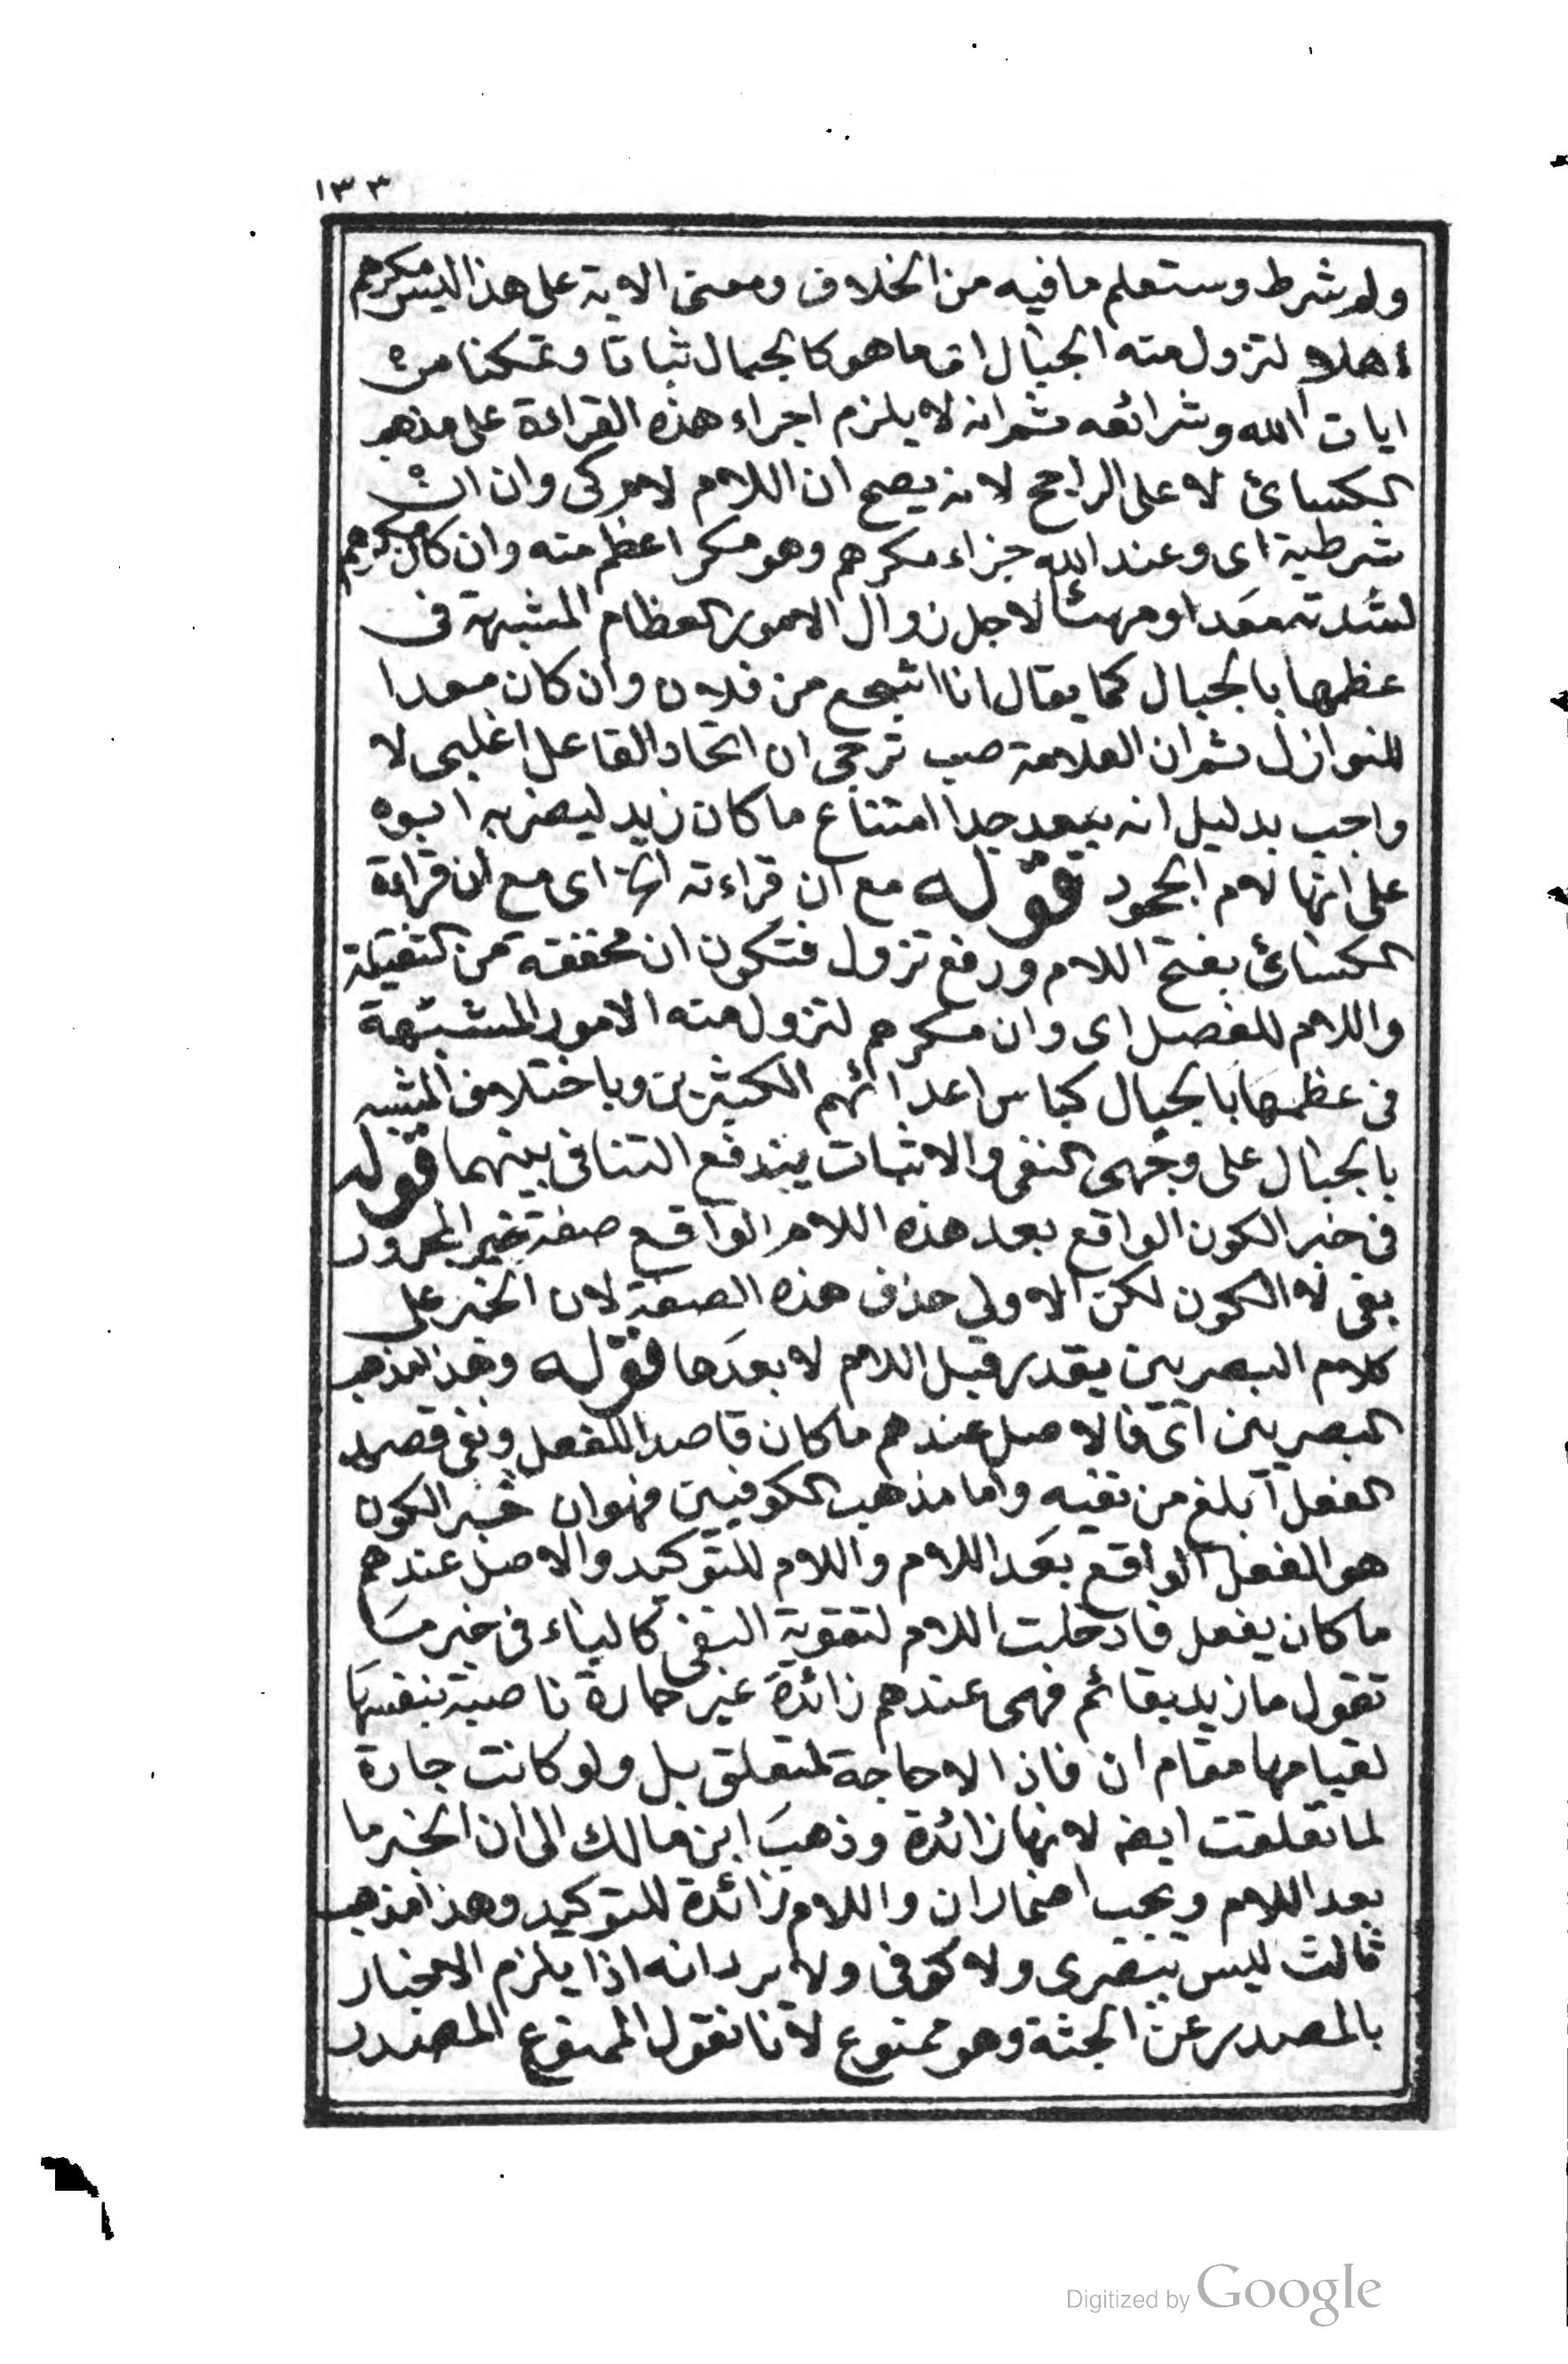 ١٣٣
ولو شرط وستعلم ما فيه من الخلاف ومعنى الاية على هذا ليس مكرهم
اهلا لتزول منه الجبال اى ما هو كالجبال ثباتا وتمكنا من
ايات الله وشرائعه ثم انه لا يلزم اجراء هذه القراءة على مذهب
الكسائى لا على الراجح لانه يصح ان اللام لام كى وان ان
شرطية اى وعند الله جزاء مكرهم وهو مكر اعظم منه وان كان مكرهم
لشدته معدا ومهيئا لاجل زوال الامور العظام المشبهة فى
عظمها بالجبال كما يقال انا اشجع من فلان وان كان معدا
للنوازل ثم ان العلامة صب ترجى ان اتحاد الفاعل اغلبى لا
واجب بدليل انه يبعد جدا امتناع ما كان زيد ليضربه ابوه
على انها لام الجحود قوله مع ان قراءته الخ اى مع ان قراءة
الكسائى بفتح اللام ورفع تزول فتكون ان مخففة من الثقيلة
واللام للفصل اى وان مكرهم لتزول منه الامور المشبهة
فى عظمها بالجبال كباس اعدائهم الكثيرين وباختلاف المشبه
بالجبال على وجهى النفى والاثبات يندفع التنافى بينهما قوله
فى خبر الكون الواقع بعد هذه اللام الواقع صفة خبر المجرور
بفى لا الكون لكن الاولى حذف هذه الصفة لان الخبر على
كلام البصريين يقدر قبل اللام لا بعدها قوله وهذا مذهب
البصريين اى فالاصل عندهم ما كان قاصدا للفعل ونفى قصد
الفعل ابلغ من نفيه واما مذهب الكوفيين فهو ان خبر الكون
هو الفعل الواقع بعد اللام واللام للتوكيد والاصل عندهم
ما كان يفعل فادخلت اللام لتقوية النفى كالباء فى خبر ما
تقول ما زيد بقائم فهى عندهم زائدة غير جارة ناصبة بنفسها
لقيامها مقام ان فاذا لا حاجة لمتعلق بل ولو كانت جارة
لما تعلقت ايضه لانها زائدة وذهب ابن مالك الى ان الخبر ما
بعد اللام ويجب اضمار ان واللام زائدة للتوكيد وهذا مذهب
ثالث ليس ببصرى ولا كوفى ولا يرد انه اذا يلزم الاخبار
بالمصدر عن الجثة وهو ممنوع لانا نقول الممنوع المصدر
Digitized by Google